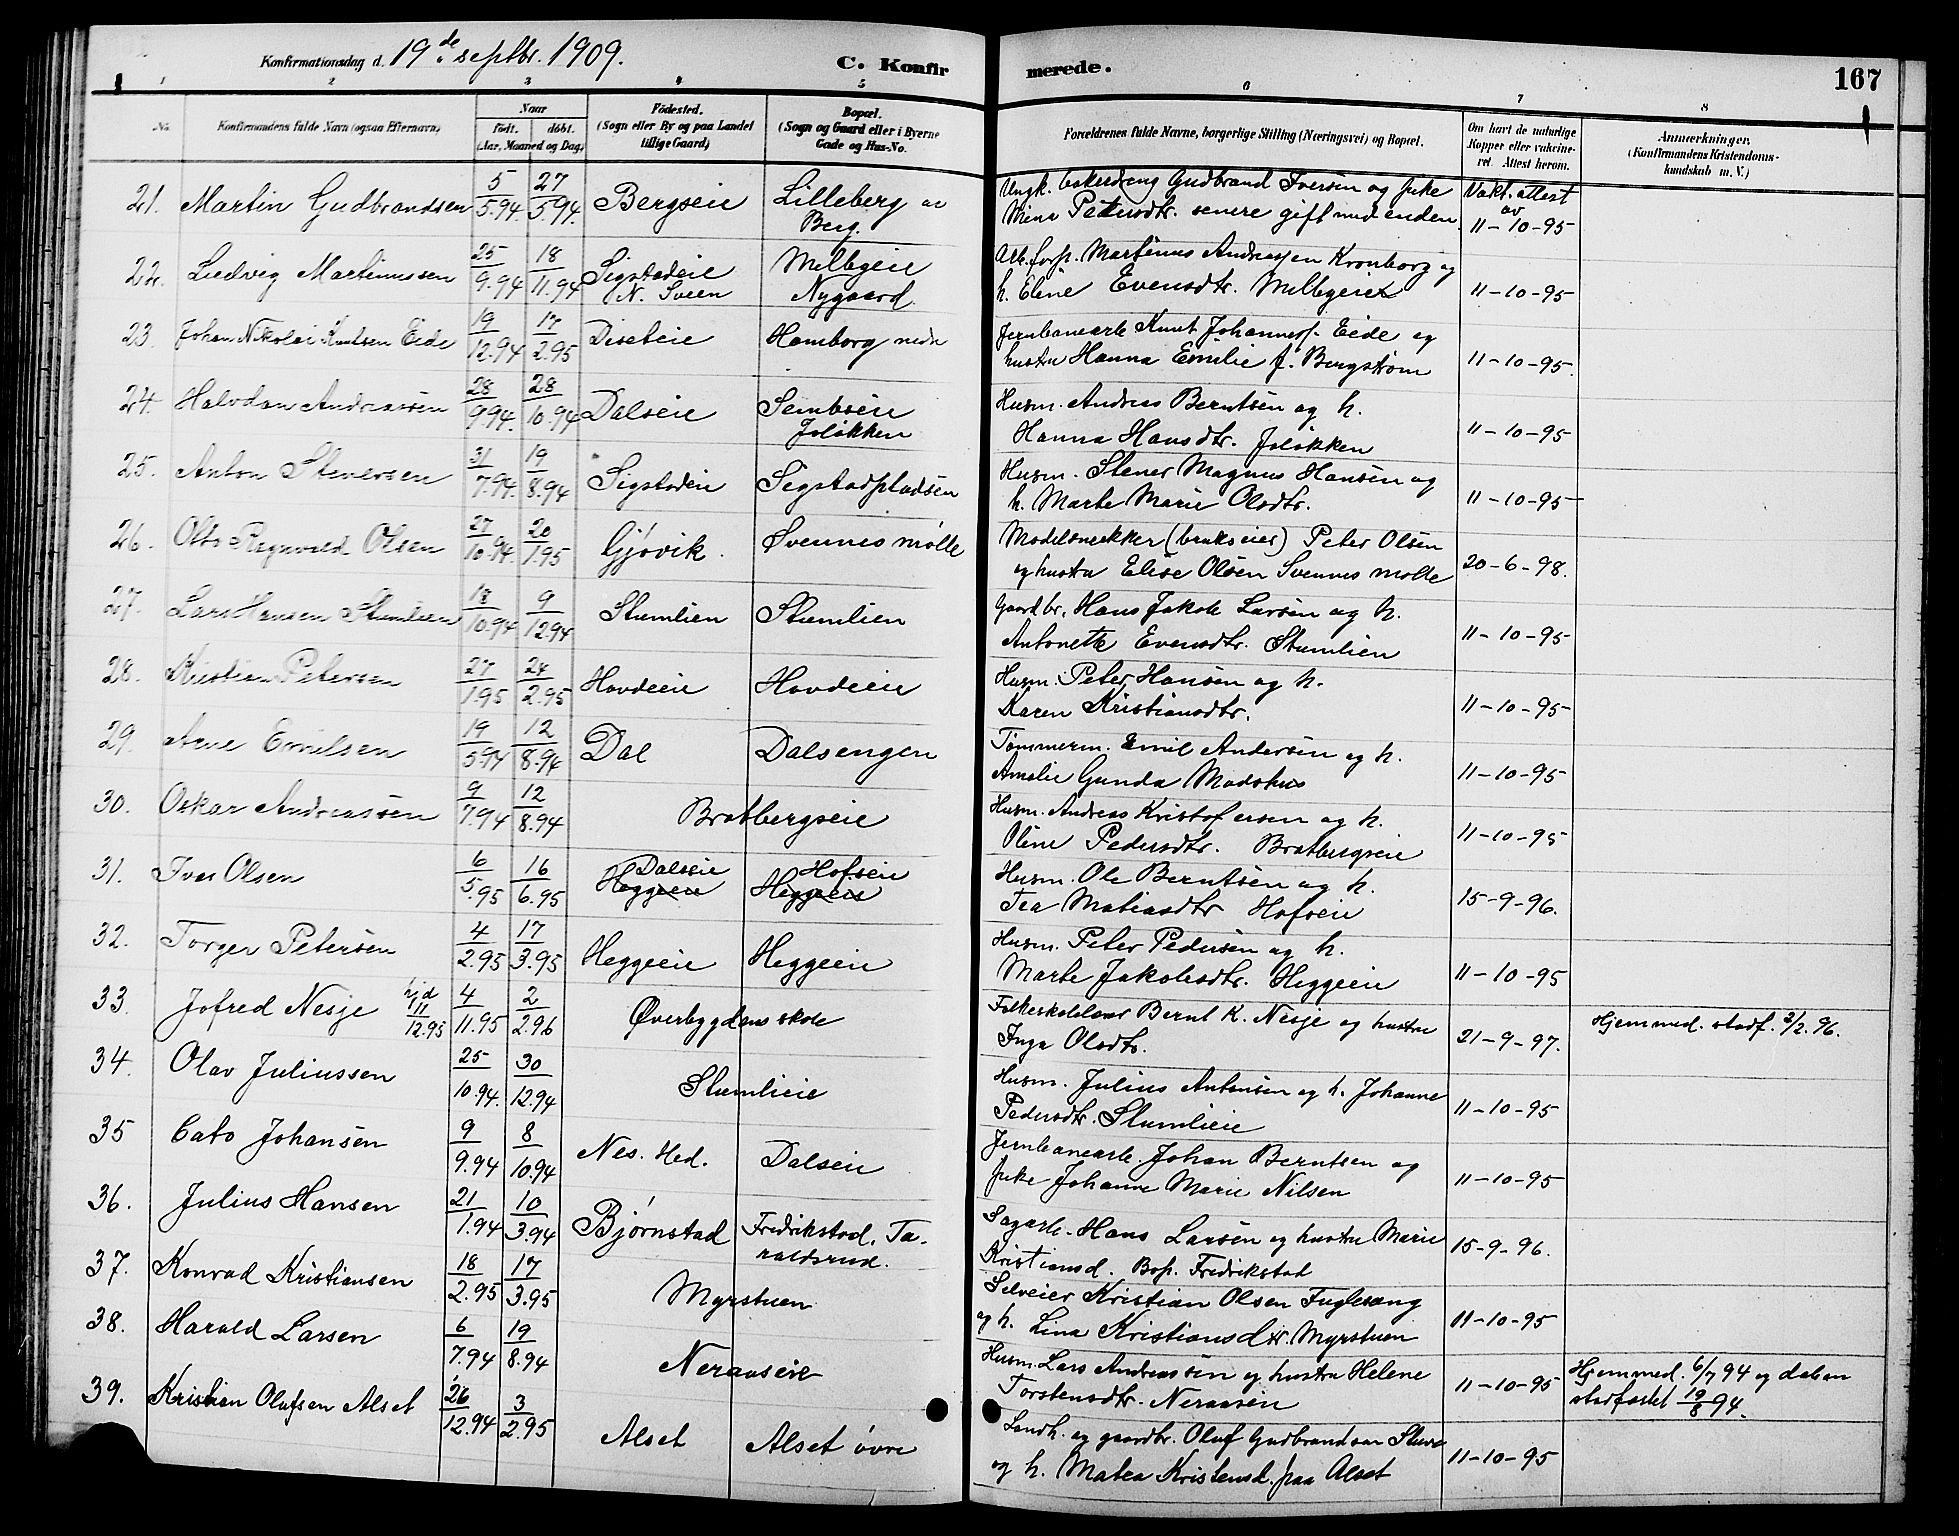 Konfirmationsdag d. 19de septbr. 1909.
C. Konfirmerede.
167
1 2 3 4 5 6 7 8
No. Konfirmandens fulde Navn (ogsaa Efternavn) Naar født. døbt. (Aar, Maaned og Dag) Fødested. (Sogn eller By og paa Landet tillige Gaard) Bopæl. (Sogn og Gaard eller i Byerne Gade og Hus-No. Forældrenes fulde Navne, borgerlige Stilling (Næringsvei) og Bopæl. Om havt de naturlige Kopper eller vakcineret. Attest herom. Anmærkninger. (Konfirmandens Kristendomskundskab m. V.)
21. Martin Gudbrandsen 5/5.94 27/5.94 Bergseie Lilleberg av Berg. Ungk. bakerdreng Gudbrand Iversen og pike
Mina Pettersdtr. senere gift med enden. Vakc. attest av 11-10-95
22. Ludvig Martinussen 25/9.94 18/11.94 Sigstadeie N. Sveen Melbyeie Nygaard Martinus Andreassen Kronborg og
h. Eline Evensdtr. Melbyeiet 11-10-95
23. Johan Nikolai Knutsen Eide 19/12.94 17/2.95 Diseteie Homborg nedre Jernbanearb. Knut Johanness. Eide og
hustru Hanna Emilie f. Bergstrøm 11-10-95.
24. Halvdan Andreassen 28/9.94. 28/10.94 Dalseie Sembseie Joløkken Husm. Andreas Berntsen og h.
Hanna Hansdtr. Joløkken 11-10-95
25. Anton Stenersen 31/7.94. 19/8.94 Sigstadeie Sigstadpladsen Husm. Stener Magnus Hansen og
h. Marte Marie Olsdtr. 11-10-95
26. Otto Ragnvald Olsen 27/10.94. 20/1.95 Gjøvik. Svennes mølle Modelsnekker (brukseier) Peter Olsen
og hustru Elise Olsen Svennes mølle 20-6-98.
27. Lars Hansen Stumlien 18/10.94 9/12.94 Stumlien Stumlien Gaardbr. Hans Jakob Larsen og h.
Antonette Evensdtr. Stumlien 11-10-95
28. Kristian Petersen 27/1.95 24/2.95 Hovdeeie Hovdeeie Husm. Peter Hansen og h.
Karen Kristiansdtr. 11-10-95
29. Arne Emilsen 19/5.94 12/8.94 Dal Dalsengen Tømmerm. Emil Andersen og h.
Amalie Gunda Madshus 11-10-95
30. Oskar Andreassen 9/7.94 12/8.94 Bratbergseie Husm. Andreas Kristofersen og h.
Oline Pedersdtr. Bratbergseie 11-10-95
31. Iver Olsen 6/5.95 16/6.95 Dalseie Heggeeie Hofseie Heggeeie Husm. Ole Berntsen og h.
Tea Matiasdtr Hofseie 15-9-96.
32. Torger Petersen 4/2.95 17/3.95 Heggeeie Heggeeie Husm. Peter Pedersen og h.
Marte Jakobsdtr. Heggeeie 11-10-95
33. Jofred Nesje hjd 11/12.95 4/11.95 2/2.96 Øverbygdens skole Folkeskolelærer Bernt K. Nesje og hustru
Inga Olsdtr. 21-9-97. Hjemmed. stadf. 2/2.96.
34. Olav Juliussen 25/10.94. 30/12.94 Stumlieie Husm. Julius Antonsen og h. Johanne
Pedersdtr. Stumlieie 11-10-95
35 Cato Johansen 9/9.94 8/10.94 Nes. Hed. Dalseie Jernbanearb. Johan Berntsen og
pike Johanne Marie Nilsen 11-10-95
36. Julius Hansen 21/1.94 10/3.94 Bjørnstad Fredrikstad. Taraldsrud. Sagarb. Hans Larsen og hustru Marie
Kristiansd. Bop. Fredrikstad 15-9-96.
37. Konrad Kristiansen 18/2.95 17/3.95 Myrstuen Selveier Kristian Olsen Fuglesang
og h. Lina Kristiansdtr. Myrstuen 11-10-95
38. Harald Larsen 6/7.94 19/8.94 Neraaseie Husm. Lars Andreassen og hustru Helene
Torstensdtr. Neraasen 11-10-95 Hjemmed. 6/7 94 og daaben
stadfæstet 19/8 94.
39. Kristian Olufsen Alset 26/12.94 3/2.95 Alset Alset øvre Landh. og gaardbr. Oluf Gudbrandsen
og h. Matea Kristensd. paa Alset 11-10-95